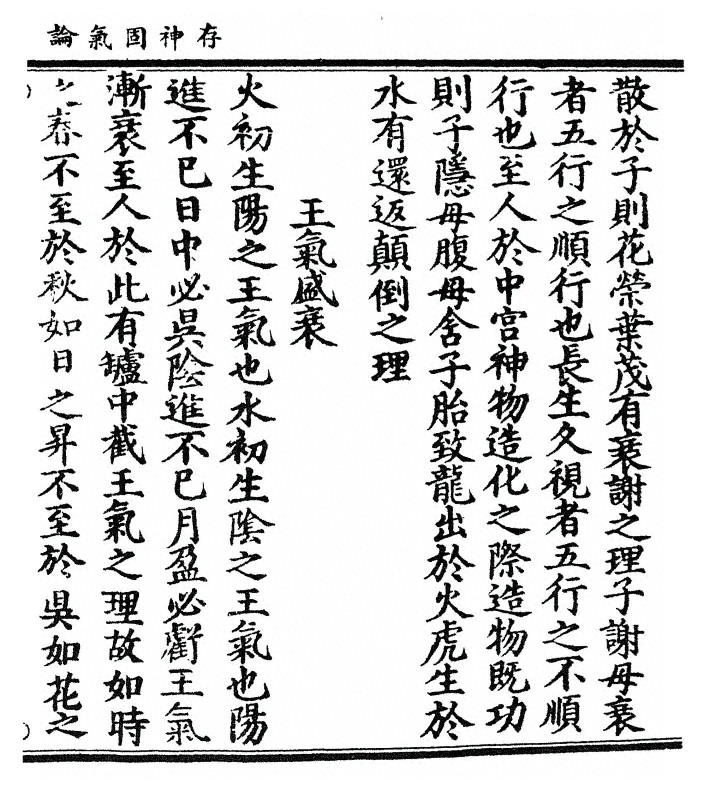 存神固氣論
散於子則花榮葉茂有衰謝之理子謝母衰
者五行之順行也長生久視者五行之不順
行也至人於中宮神物造化之際造物既功
則子隱母腹母舍子胎致龍出於火虎生於
水有還返顛倒之理
王氣盛衰
火初生陽之王氣也水初生陰之王氣也陽
進不已日中必昃陰進不已月盈必虧王氣
漸衰至人於此有罏中截王氣之理故如時
之春不至於秋如日之昇不至於昃如花之